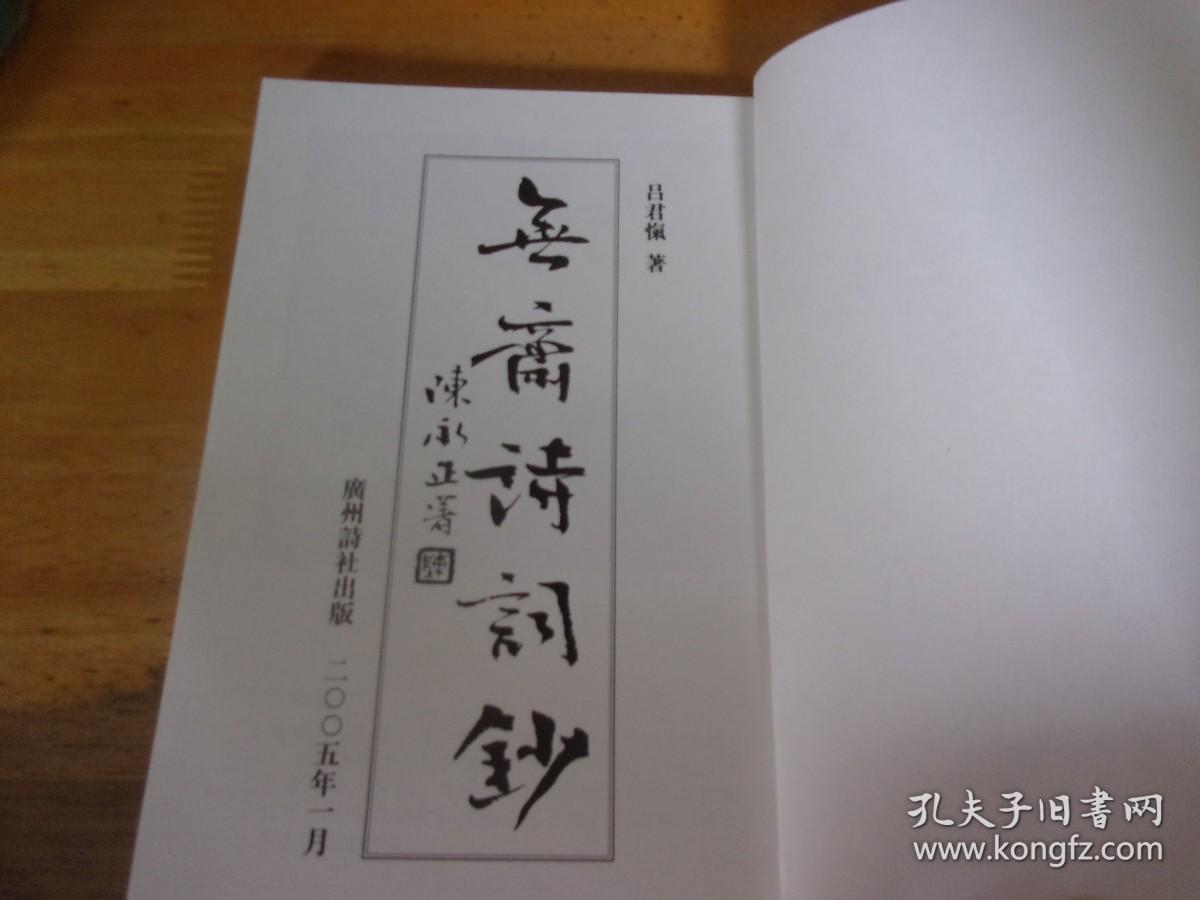 呂君愾 著
無齋詩詞鈔
陳永正署
廣州詩社出版 二〇〇五年一月
孔夫子旧书网
www.kongfz.com